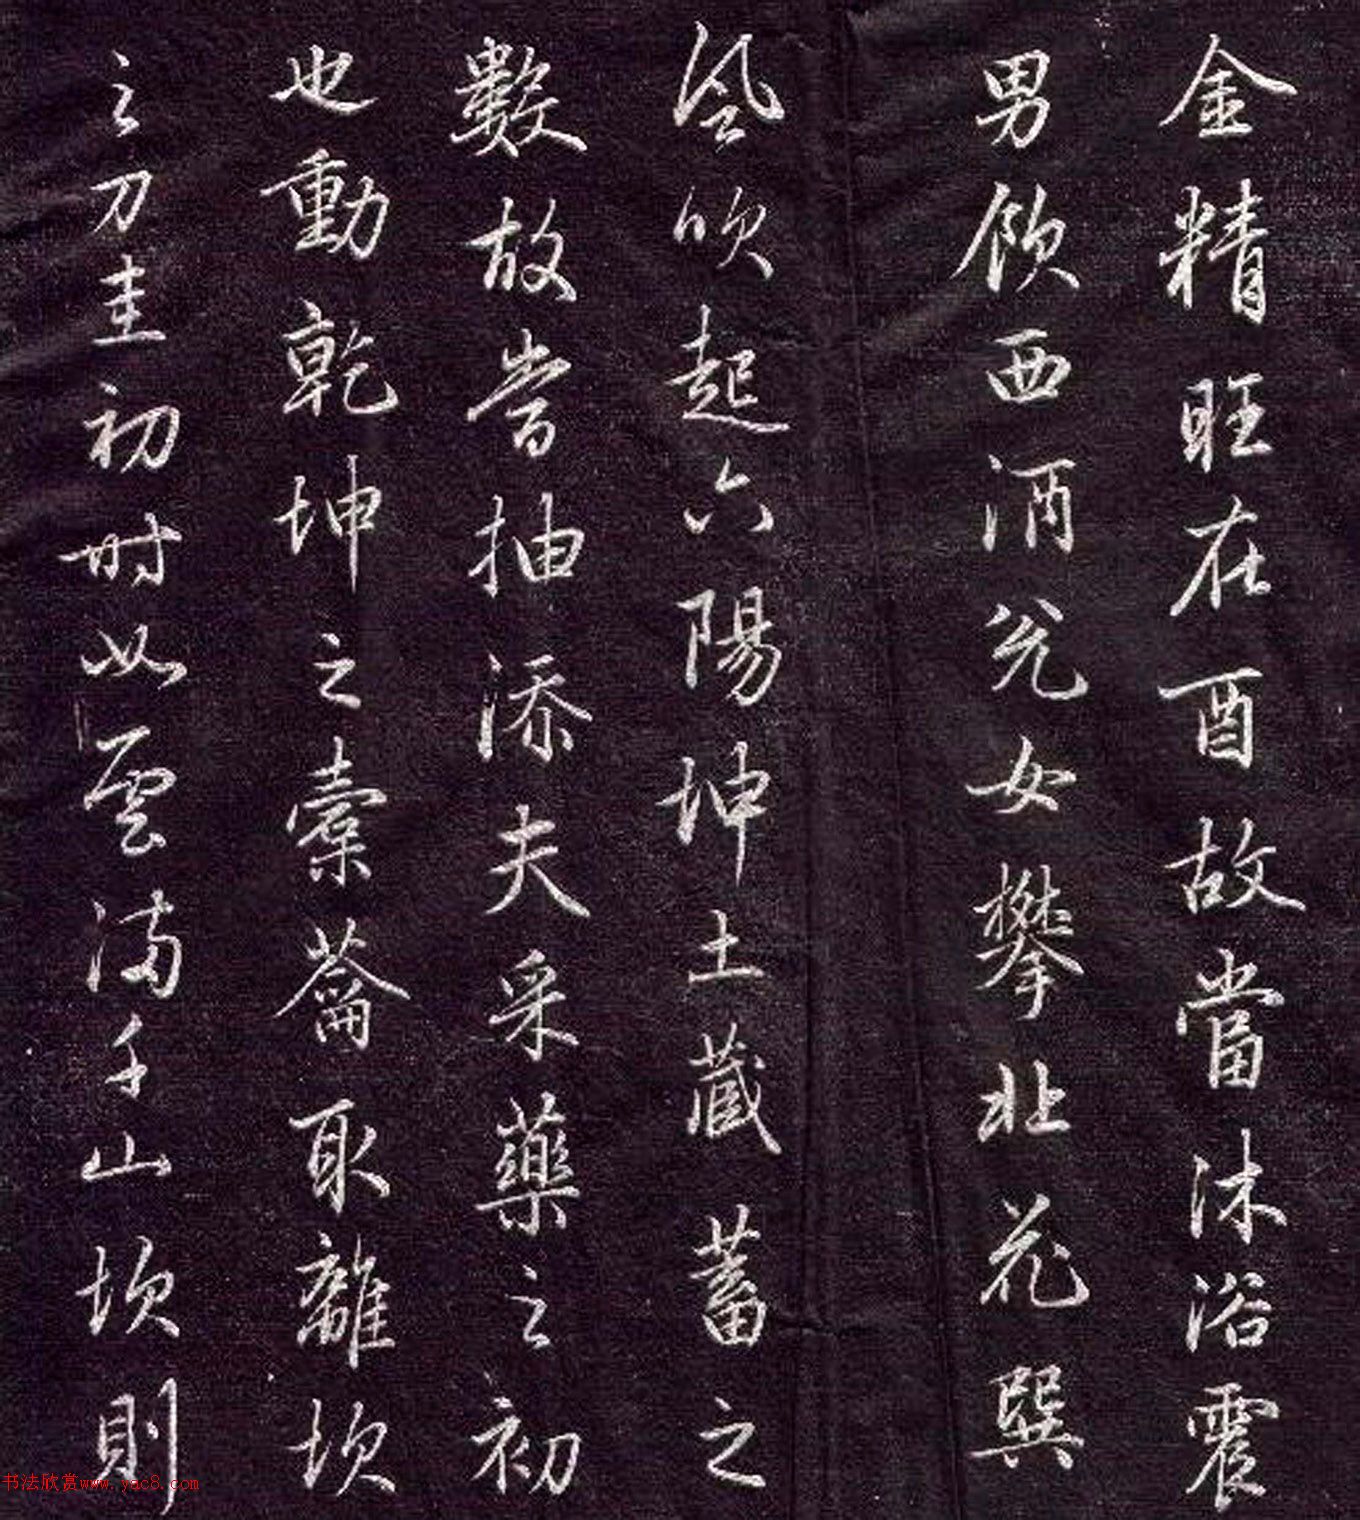 金精旺在酉故當沐浴震
男飲西酒兌女攀北花巽
風吹起六陽坤土藏蓄之
數故當抽添夫采藥之初
也動乾坤之橐籥取離坎
之刀圭初時如雲滿千山坎則
书法欣赏www.yac8.com